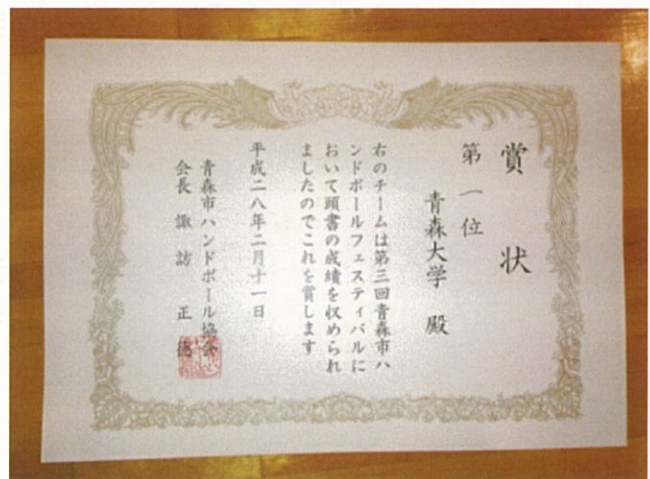 賞状
第一位
青森大学 殿
右のチームは第三回青森市ハ
ンドボールフェスティバルに
おいて頭書の成績を収められ
ましたのでこれを賞します
平成二八年二月十一日
青森市ハンドボール協会
会長 諏訪 正徳